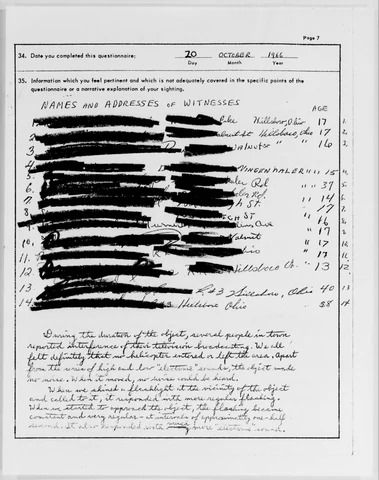 Page 7
34. Date you completed this questionnaire: 20 OCTOBER 1966
Day Month Year
35. Information which you feel pertinent and which is not adequately covered in the specific points of the
questionnaire or a narrative explanation of your sighting.
NAMES AND ADDRESSES OF WITNESSES AGE
1. Pike Hillsboro, Ohio 17 1.
2. St Hillsboro, Ohio 17 2.
3. Walnut St " " 16 3.
4. " " 15 4.
5. Rd " " 39 5.
6. Rd. " 14 6.
7. St. " 17 7.
8. ST " 16 8.
9. Ave " 17 9.
10. Walnut " 17 10.
11. Ohio 17 11.
12 Hillsboro Oh. " 13 12.
13. Rd 3 Hillsboro, Ohio 40 13
14. 3 Hillsboro Ohio 38 14
During the duration of the object, several people in town
reported interference of their television broadcasting. We all
felt definitely that no helicopter entered or left the area. Apart
from the series of high and low "electronic" sounds, the object made
no more. When it moved, no noise could be heard.
When we shined a flashlight at the vicinity of the object
and called to it, it responded with more regular flashing.
When we started to approach the object, the flashing became
constant and very regular - at intervals of approximately one-half
second. It also responded with more "electronic" sounds.